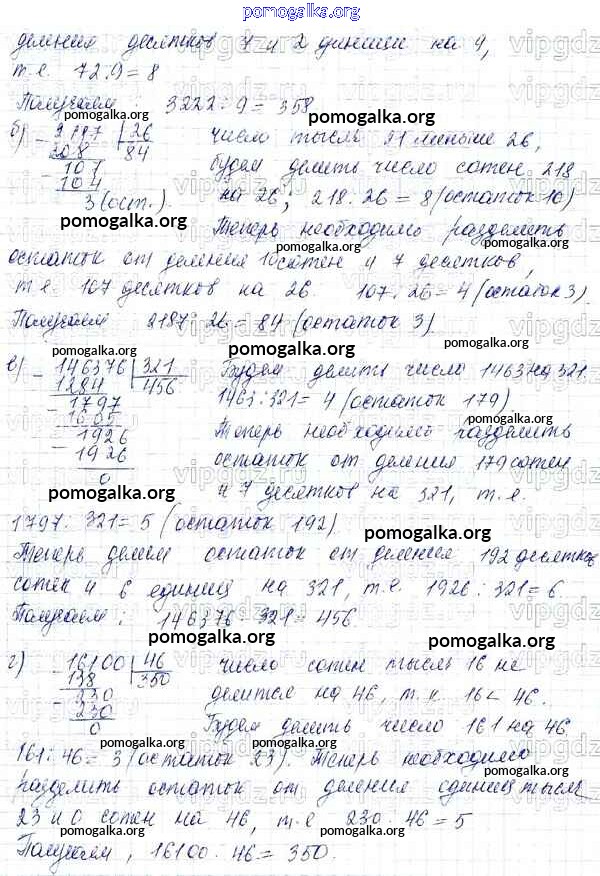 pomogalka.org
деления десятков 7 и 2 единиц на 9,
т.е. 72:9=8
Получаем: 3222:9=358
pomogalka.org
б) 2187 26 число тысяч 21 меньше 26,
208 84 будем делить число сотен 218
107
104 на 26, 218:26=8 (остаток 10)
3 (ост.)
pomogalka.org pomogalka.org
Теперь необходимо разделить
остаток от деления 10 сотен и 7 десятков,
т.е. 107 десятков на 26. 107:26=4 (остаток 3)
Получаем 2187:26=84 (остаток 3)
pomogalka.org
в) 146376 321 Будем делить число 1463 на 321
1284 456 1463:321=4 (остаток 179)
1797 pomogalka.org
1605 Теперь необходимо разделить
1926
1926 остаток от деления 179 сотен
0 и 7 десятков на 321, т.е.
pomogalka.org
1797:321=5 (остаток 192)
pomogalka.org
Теперь делим остаток от деления 192 десятков
сотен и 6 единиц на 321, т.е. 1926:321=6.
Получаем: 146376:321=456.
pomogalka.org pomogalka.org
г) 16100 46 число сотен тысяч 16 не
138 350 делится на 46, т.к. 16<46.
230
230 Будем делить число 161 на 46
0
pomogalka.org pomogalka.org
161:46=3 (остаток 23). Теперь необходимо
разделить остаток от деления единиц тысяч
pomogalka.org
23 и 0 сотен на 46, т.е 230:46=5
pomogalka.org pomogalka.org
Получаем, 16100:46=350.